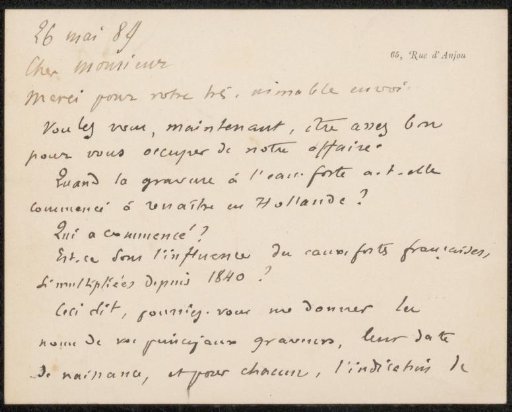 26 mai 89
65, Rue d'Anjou
Cher Monsieur
Merci pour votre très aimable envoi.
Voulez vous, maintenant, être assez bon
pour vous occuper de notre affaire.
Quand la gravure à l'eau-forte a-t-elle
commencé à renaître en Hollande ?
Qui a commencé ?
Est-ce sous l'influence des eaux-fortes françaises,
si multipliées depuis 1840 ?
Ceci dit, pourriez-vous me donner les
noms de vos principaux graveurs, leur date
de naissance, et pour chacun, l'indication de